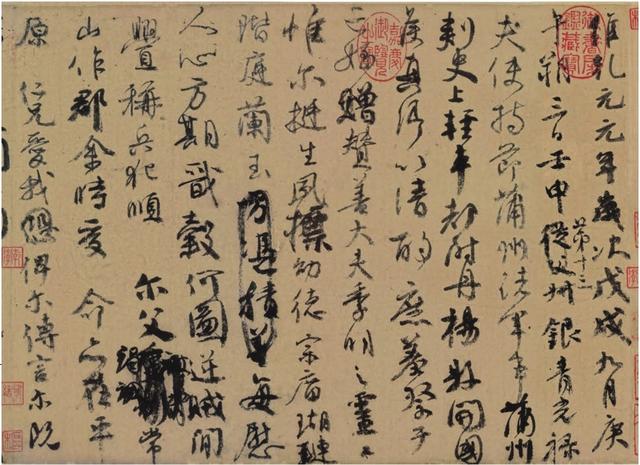 維乾元元年歲次戊戌九月庚
午朔三日壬申第十三從父叔銀青光祿
夫使持節蒲州諸軍事蒲州
刺史上輕車都尉丹楊縣開國
侯真卿以清酌庶羞祭于
亡姪贈贊善大夫季明之靈曰
惟爾挺生夙標幼德宗廟瑚璉
階庭蘭玉方憑積善每慰
人心方期戩穀何圖逆賊閒
釁稱兵犯順爾父竭誠常
山作郡余時受命亦在平
原仁兄愛我恐俾爾傳言爾既
御書房鑑藏寶